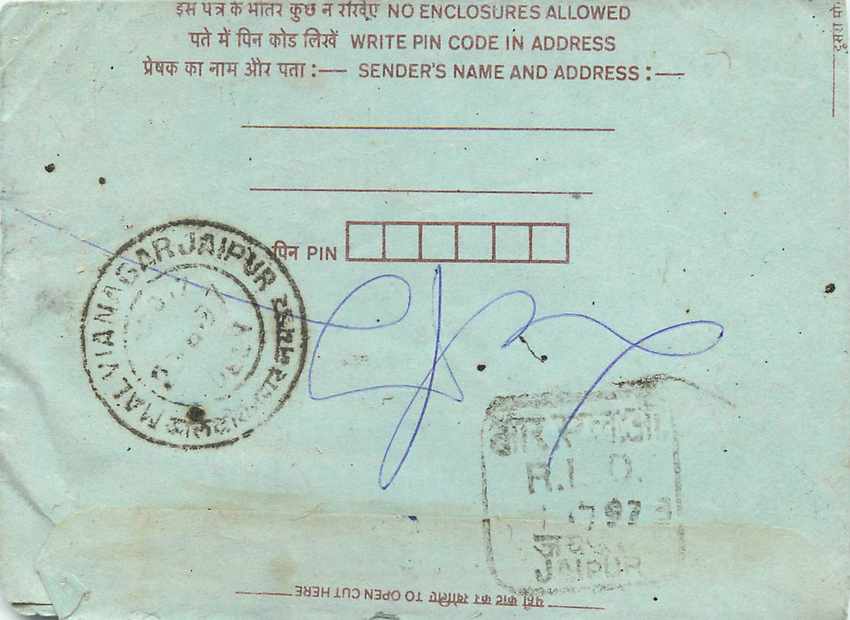 इस पत्र के भीतर कुछ न रखिए NO ENCLOSURES ALLOWED
पते में पिन कोड लिखें WRITE PIN CODE IN ADDRESS
प्रेषक का नाम और पता :— SENDER'S NAME AND ADDRESS :—
पिन PIN
MALVIANAGAR JAIPUR
आर.एल.ओ.
R.L.O.
97
JAIPUR
यहाँ काट कर खोलिए TO OPEN CUT HERE